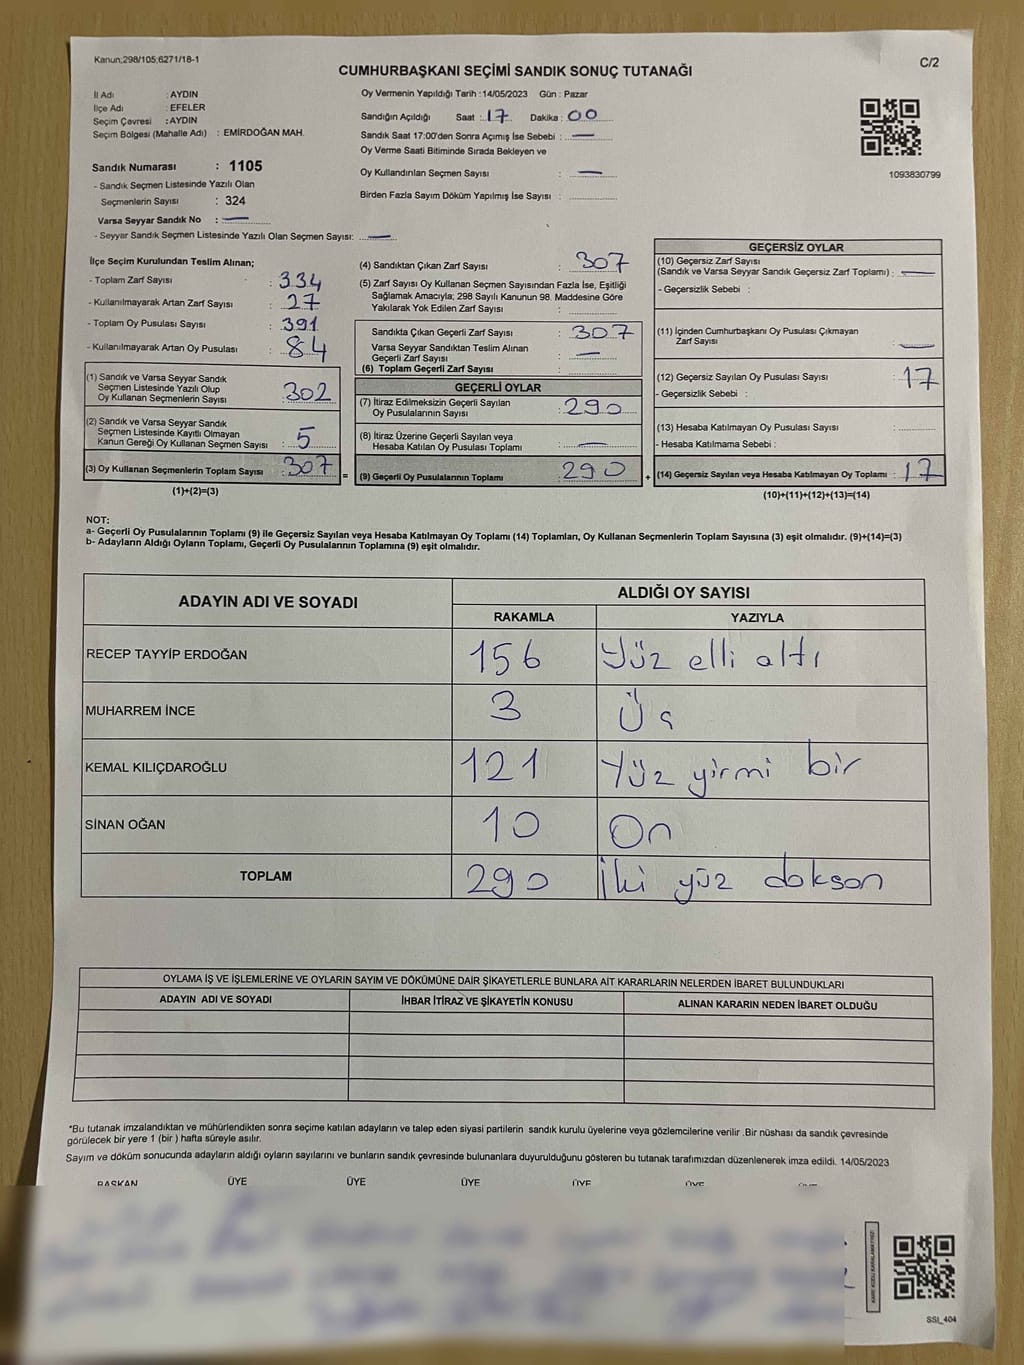 Kanun;298/105,6271/18-1
C/2
CUMHURBAŞKANI SEÇİMİ SANDIK SONUÇ TUTANAĞI
İl Adı : AYDIN
İlçe Adı : EFELER
Seçim Çevresi : AYDIN
Seçim Bölgesi (Mahalle Adı) : EMİRDOĞAN MAH.
Sandık Numarası : 1105
- Sandık Seçmen Listesinde Yazılı Olan
Seçmenlerin Sayısı : 324
Varsa Seyyar Sandık No : —
- Seyyar Sandık Seçmen Listesinde Yazılı Olan Seçmen Sayısı: —
Oy Vermenin Yapıldığı Tarih :14/05/2023 Gün : Pazar
Sandığın Açıldığı Saat : 17 Dakika : 00
Sandık Saat 17:00'den Sonra Açımış İse Sebebi : —
Oy Verme Saati Bitiminde Sırada Bekleyen ve
Oy Kullandırılan Seçmen Sayısı : —
Birden Fazla Sayım Döküm Yapılmış İse Sayısı :
1093830799
İlçe Seçim Kurulundan Teslim Alınan;
- Toplam Zarf Sayısı : 334
- Kullanılmayarak Artan Zarf Sayısı : 27
- Toplam Oy Pusulası Sayısı : 391
- Kullanılmayarak Artan Oy Pusulası : 84
(1) Sandık ve Varsa Seyyar Sandık
Seçmen Listesinde Yazılı Olup
Oy Kullanan Seçmenlerin Sayısı : 302
(2) Sandık ve Varsa Seyyar Sandık
Seçmen Listesinde Kayıtlı Olmayan
Kanun Gereği Oy Kullanan Seçmen Sayısı : 5
(3) Oy Kullanan Seçmenlerin Toplam Sayısı : 307
(1)+(2)=(3)
(4) Sandıktan Çıkan Zarf Sayısı : 307
(5) Zarf Sayısı Oy Kullanan Seçmen Sayısından Fazla İse, Eşitliği
Sağlamak Amacıyla; 298 Sayılı Kanunun 98. Maddesine Göre
Yakılarak Yok Edilen Zarf Sayısı :
Sandıkta Çıkan Geçerli Zarf Sayısı : 307
Varsa Seyyar Sandıktan Teslim Alınan
Geçerli Zarf Sayısı : —
(6) Toplam Geçerli Zarf Sayısı :
GEÇERLİ OYLAR
(7) İtiraz Edilmeksizin Geçerli Sayılan
Oy Pusulalarının Sayısı : 290
(8) İtiraz Üzerine Geçerli Sayılan veya
Hesaba Katılan Oy Pusulaları Toplamı : —
= (9) Geçerli Oy Pusulalarının Toplamı : 290
GEÇERSİZ OYLAR
(10) Geçersiz Zarf Sayısı
(Sandık ve Varsa Seyyar Sandık Geçersiz Zarf Toplamı) : —
- Geçersizlik Sebebi :
(11) İçinden Cumhurbaşkanı Oy Pusulası Çıkmayan
Zarf Sayısı : —
(12) Geçersiz Sayılan Oy Pusulası Sayısı : 17
- Geçersizlik Sebebi :
(13) Hesaba Katılmayan Oy Pusulası Sayısı :
- Hesaba Katılmama Sebebi :
+ (14) Geçersiz Sayılan veya Hesaba Katılmayan Oy Toplamı : 17
(10)+(11)+(12)+(13)=(14)
NOT:
a- Geçerli Oy Pusulalarının Toplamı (9) ile Geçersiz Sayılan veya Hesaba Katılmayan Oy Toplamı (14) Toplamları, Oy Kullanan Seçmenlerin Toplam Sayısına (3) eşit olmalıdır. (9)+(14)=(3)
b- Adayların Aldığı Oyların Toplamı, Geçerli Oy Pusulalarının Toplamına (9) eşit olmalıdır.
ADAYIN ADI VE SOYADI ALDIĞI OY SAYISI
RAKAMLA YAZIYLA
RECEP TAYYİP ERDOĞAN 156 Yüz elli altı
MUHARREM İNCE 3 Üç
KEMAL KILIÇDAROĞLU 121 Yüz yirmi bir
SİNAN OĞAN 10 On
TOPLAM 290 İki yüz doksan
OYLAMA İŞ VE İŞLEMLERİNE VE OYLARIN SAYIM VE DÖKÜMÜNE DAİR ŞİKAYETLERLE BUNLARA AİT KARARLARIN NELERDEN İBARET BULUNDUKLARI
ADAYIN ADI VE SOYADI İHBAR İTİRAZ VE ŞİKAYETİN KONUSU ALINAN KARARIN NEDEN İBARET OLDUĞU
*Bu tutanak imzalandıktan ve mühürlendikten sonra seçime katılan adayların ve talep eden siyasi partilerin sandık kurulu üyelerine veya gözlemcilerine verilir .Bir nüshası da sandık çevresinde
görülecek bir yere 1 (bir ) hafta süreyle asılır.
Sayım ve döküm sonucunda adayların aldığı oyların sayılarını ve bunların sandık çevresinde bulunanlara duyurulduğunu gösteren bu tutanak tarafımızdan düzenlenerek imza edildi. 14/05/2023
BAŞKAN ÜYE ÜYE ÜYE ÜYE ÜYE ÜYE
KARE KODU KARALAMAYINIZ!
SSI_404